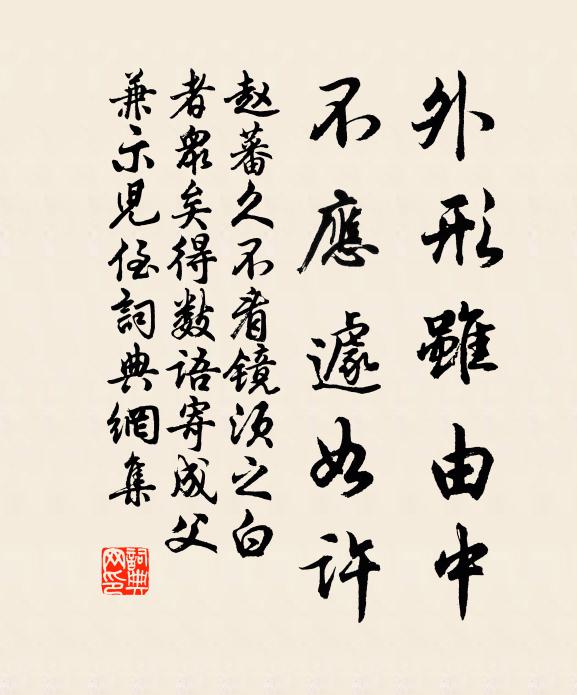 外形雖由中
不應遽如許
赵蕃久不看镜须之白
者眾矣得数语寄成父
兼示児侄詞典網集
詞典网印